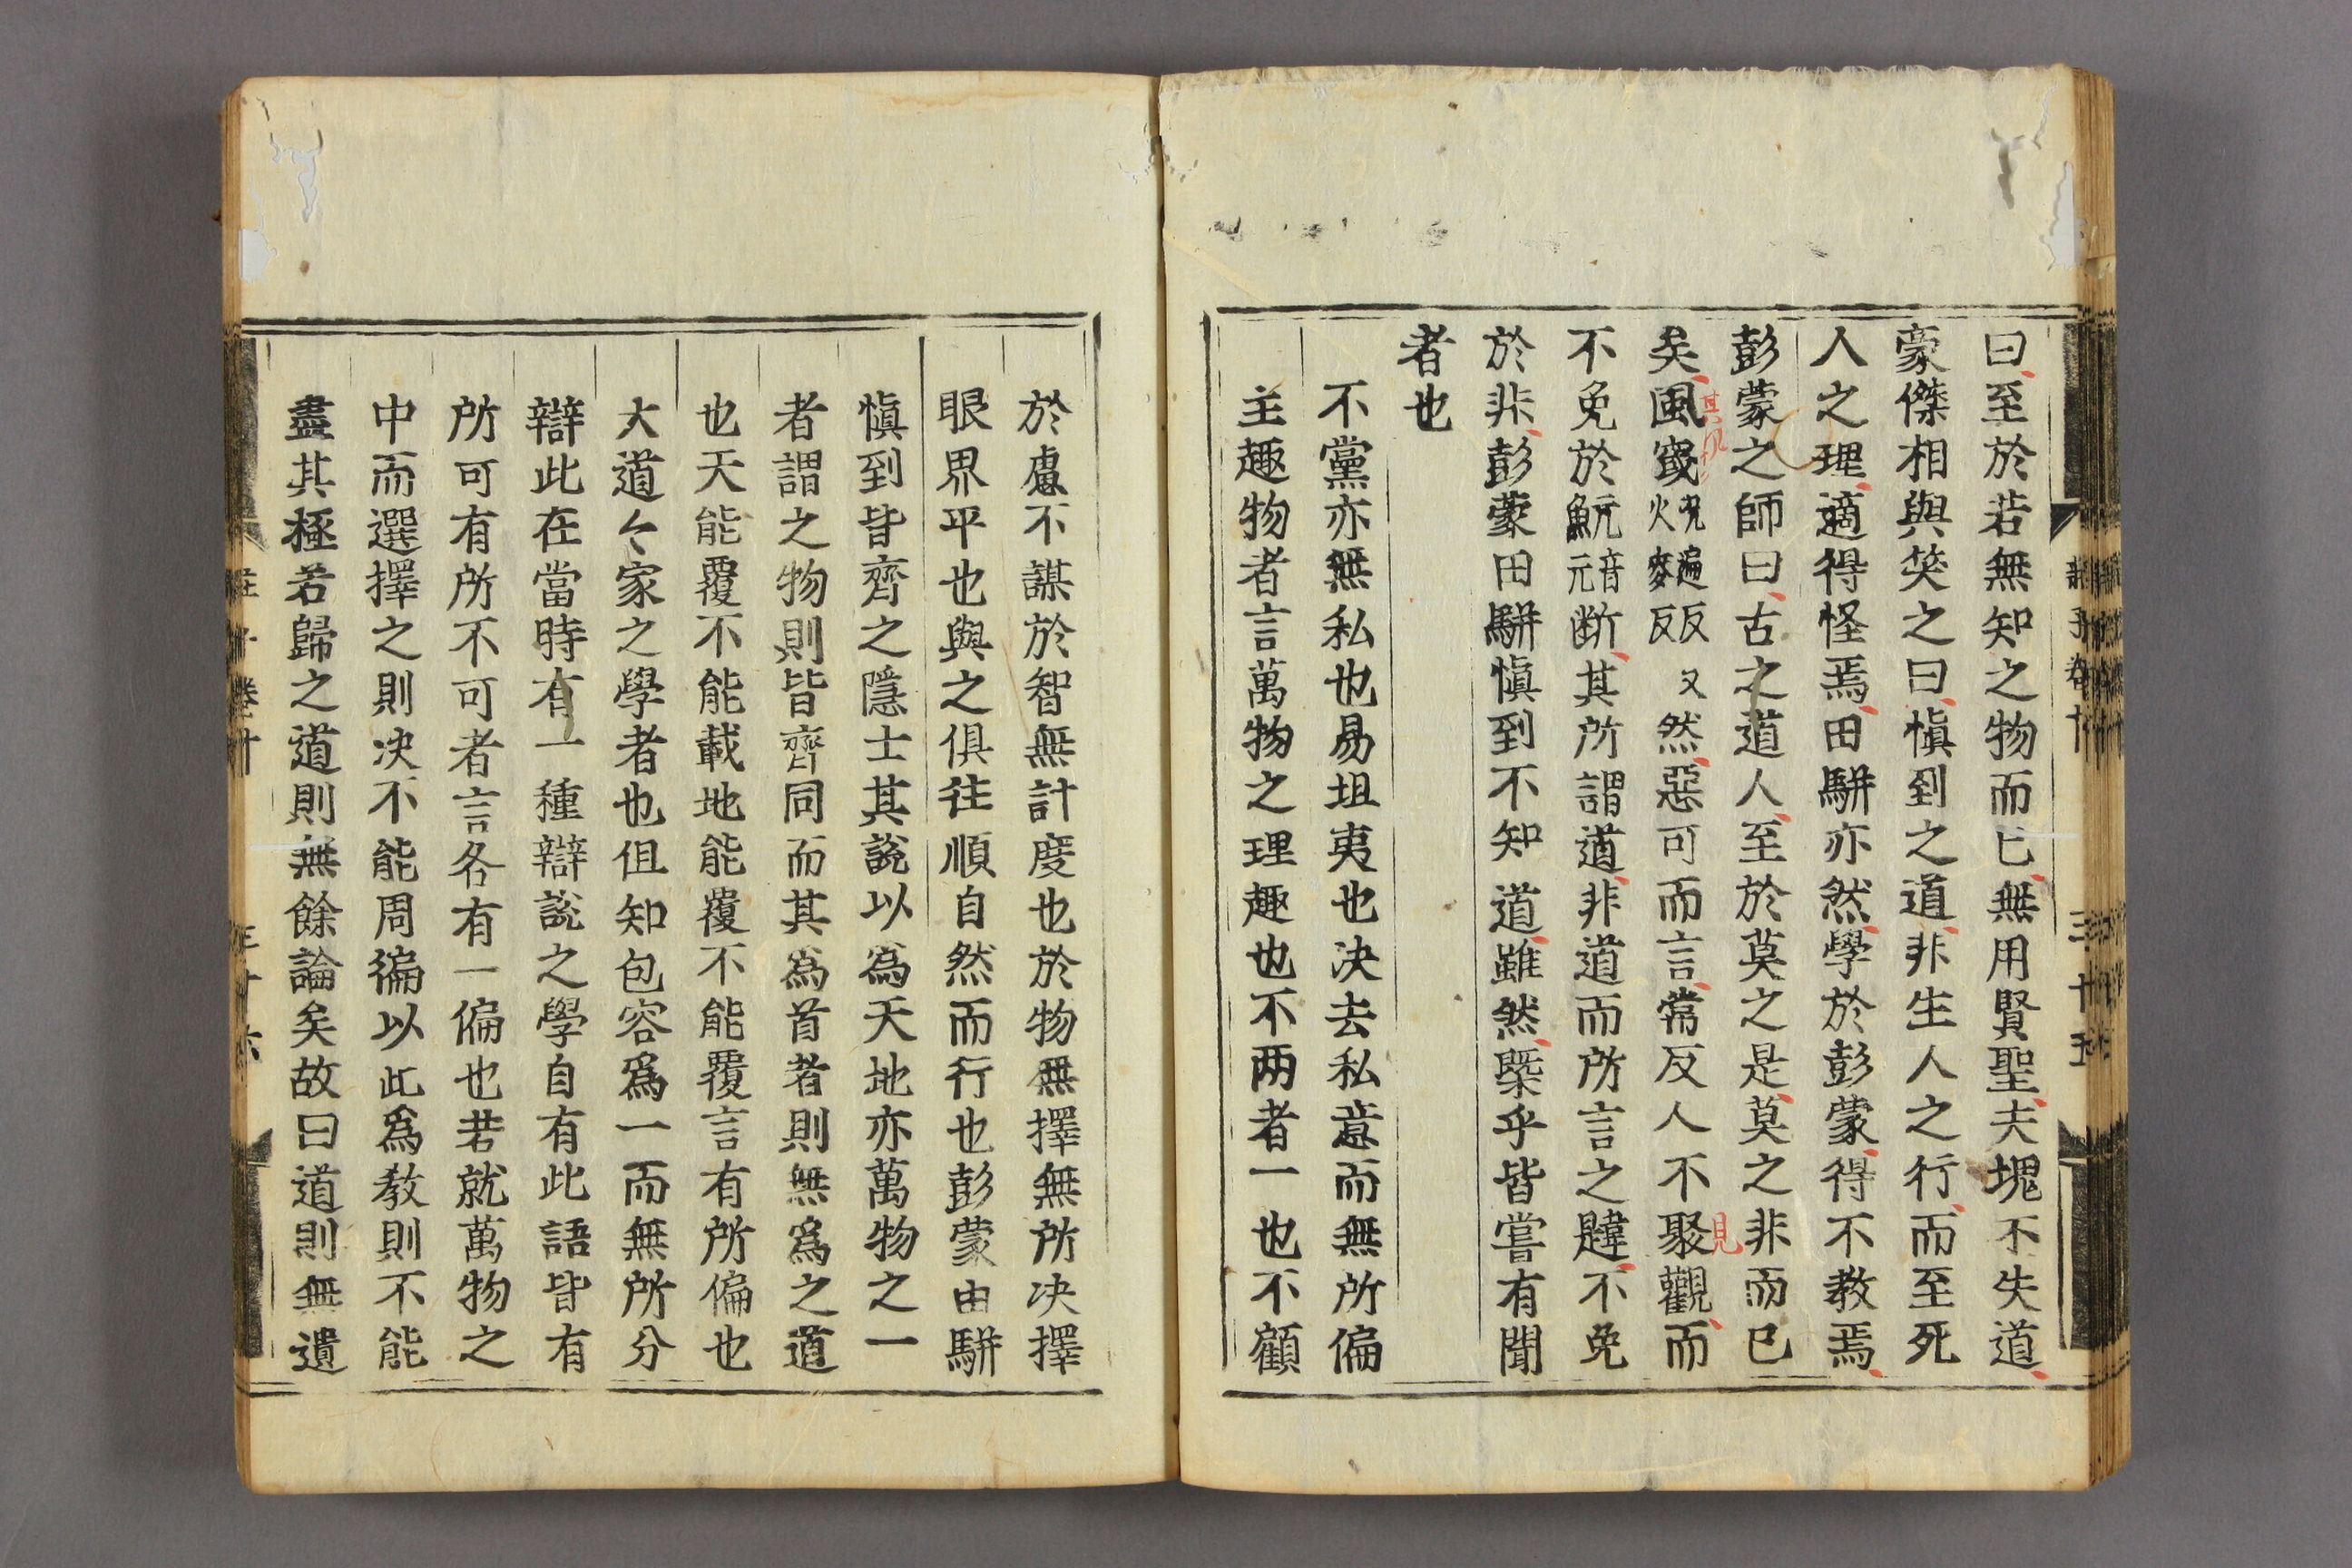 曰至於若無知之物而已無用賢聖夫塊不失道
豪傑相與笑之曰愼到之道非生人之行而至死
人之理適得怪焉田騈亦然學於彭蒙得不教焉
彭蒙之師曰古之道人至於莫之是莫之非而已
矣風窢況逼反又火麥反然惡可而言常反人不聚觀而
其風
見
不免於魭元音元斷其所謂道非道而所言之韙不免
於非彭蒙田騈愼到不知道雖然槩乎皆嘗有聞
者也
不黨亦無私也易坦夷也决去私意而無所偏
主趣物者言萬物之理趣也不兩者一也不顧
莊子卷十
三十五
於慮不謀於智無計度也於物無擇無所决擇
眼界平也與之俱往順自然而行也彭蒙田騈
愼到皆齊之隱士其說以為天地亦萬物之一
者謂之物則皆齊同而其為首者則無為之道
也天能覆不能載地能載不能覆言有所偏也
大道〻家之學者也但知包容爲一而無所分
辯此在當時有一種辯說之學自有此語皆有
所可有所不可者言各有一偏也若就萬物之
中而選擇之則决不能周徧以此爲教則不能
盡其極若歸之道則無餘論矣故曰道則無遺
莊子卷十
三十六